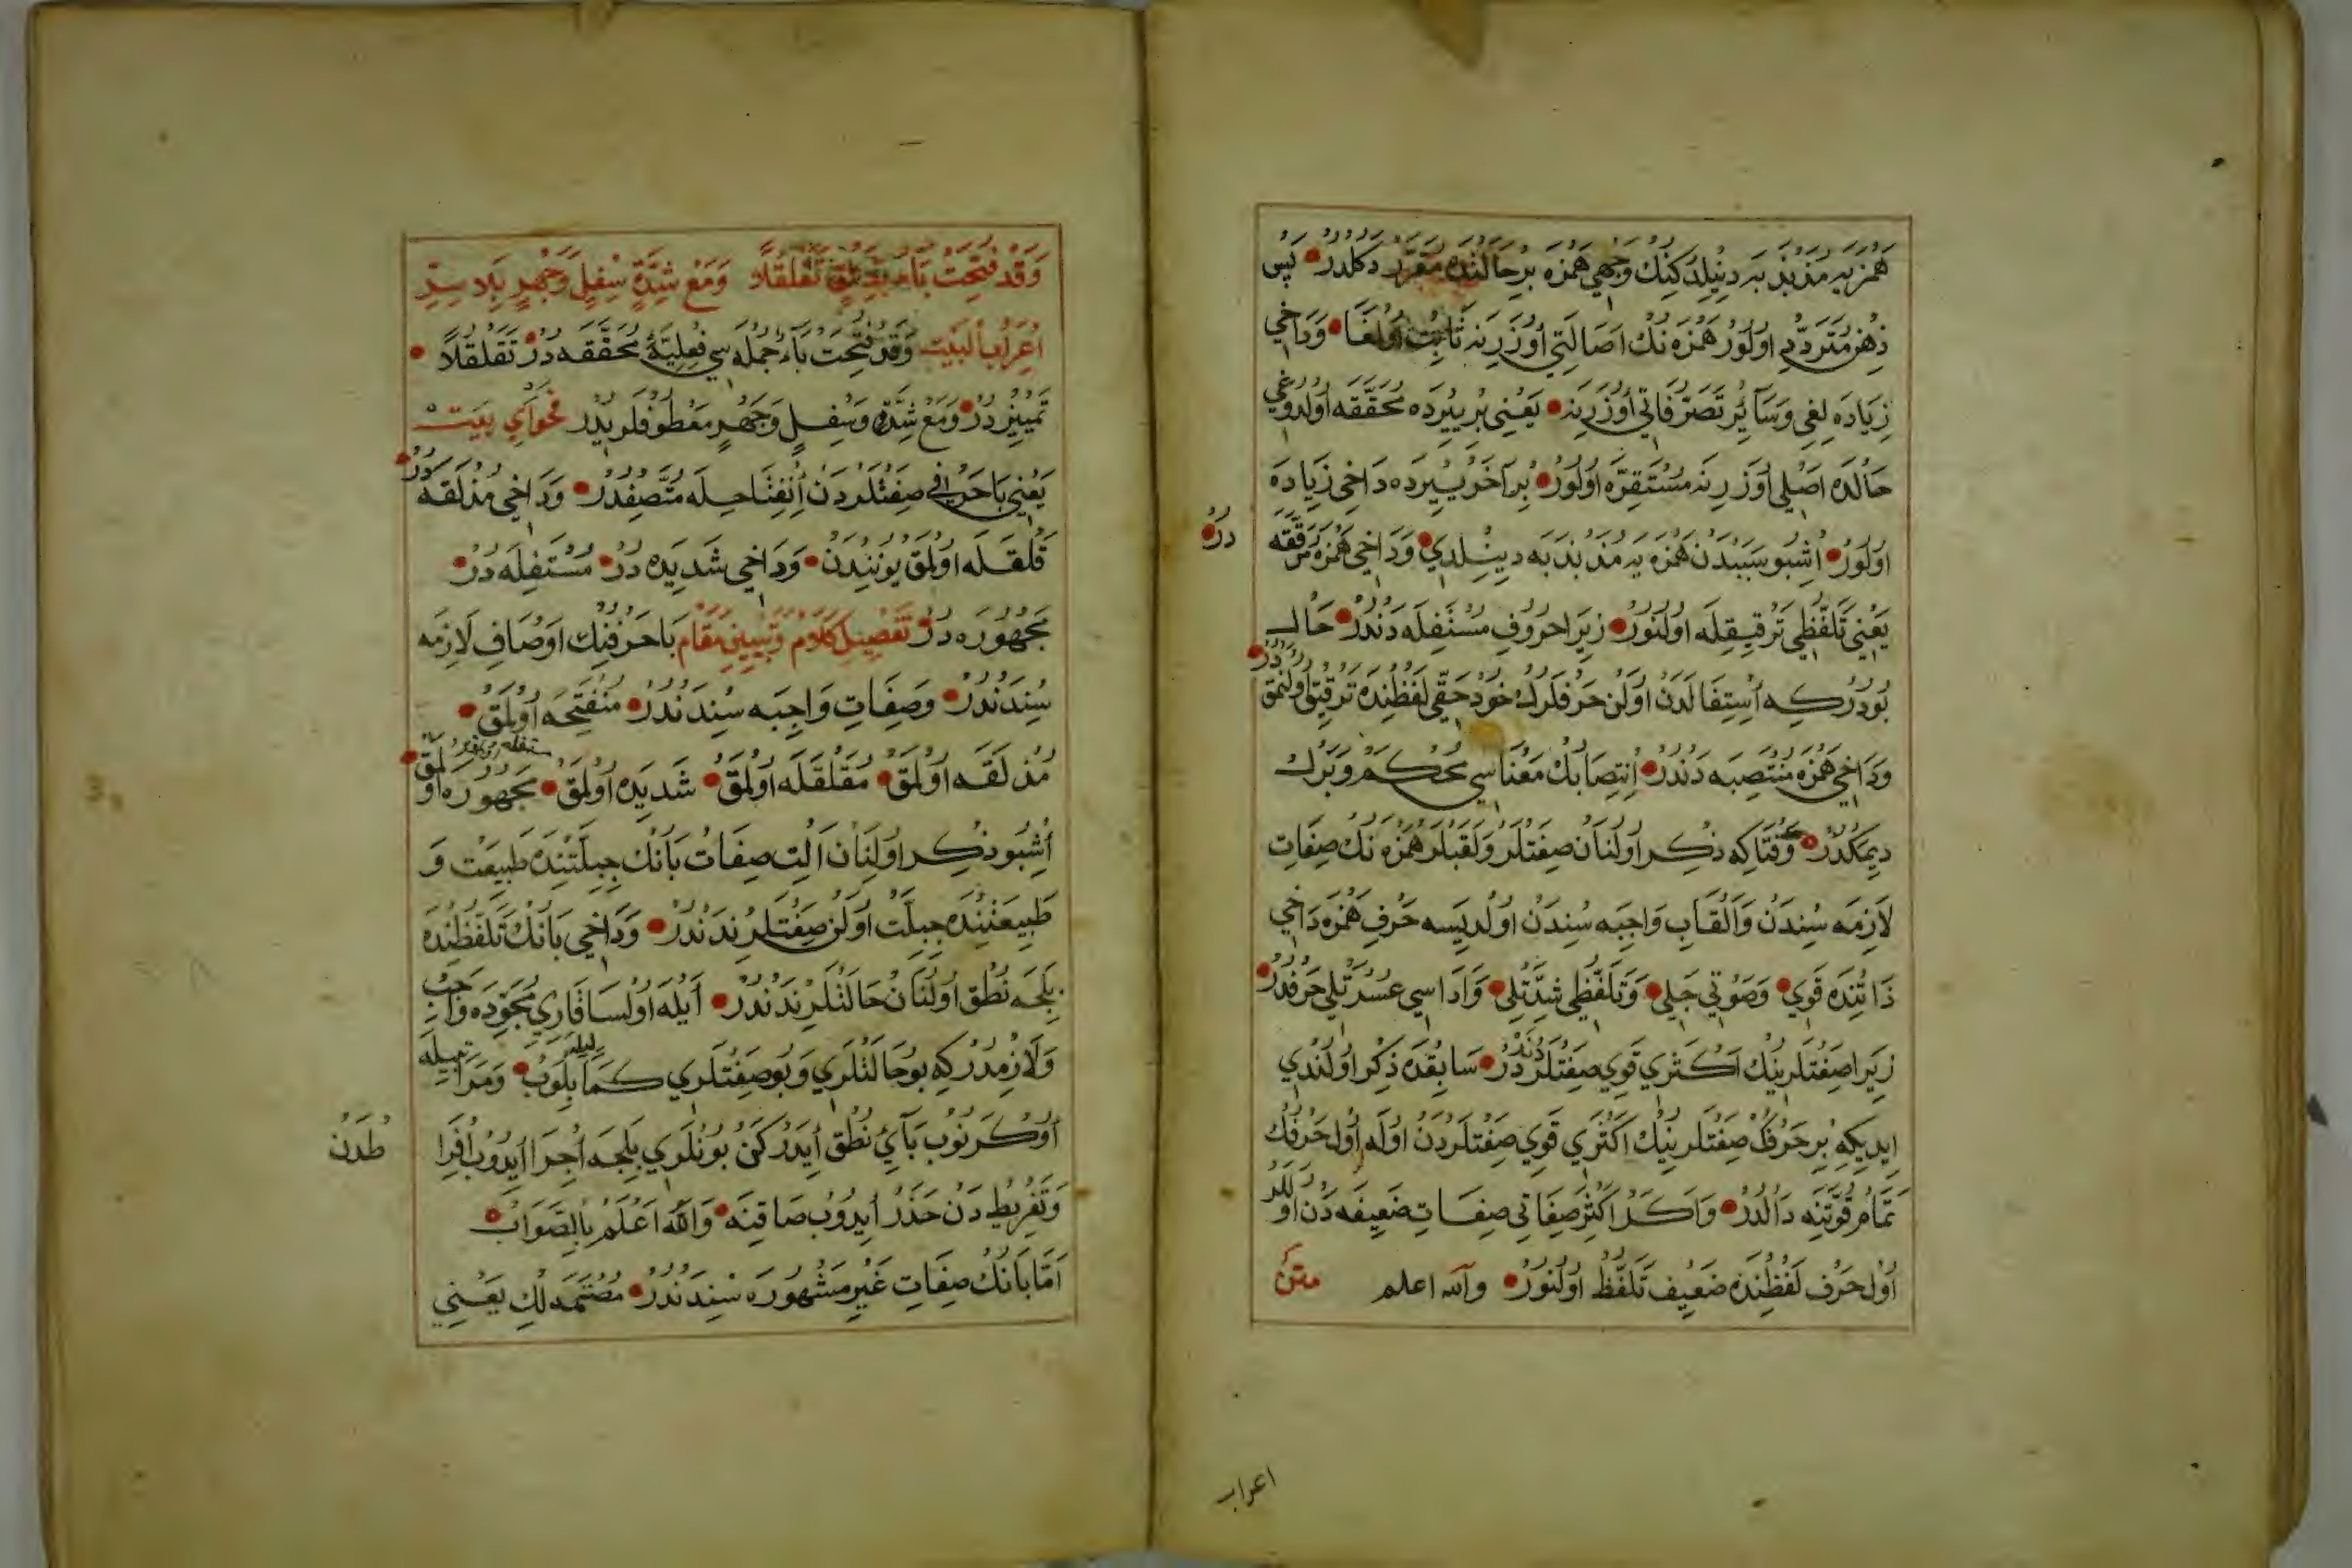 همزيه مذبذبه دينيلدكنك وجهي همزه بر حالنده مقرر دكلدر پس
ذهن متردد اولور همزه نك اصالتي اوزرينه ثابت اولغا وداخي
زياده لغي وسائر تصرفاتي اوزرينه يعني بر ييرده محققه اولدوغي
حالده اصلي اوزرينه مستقره اولور بر آخر ييرده داخي زياده
اولور اشبو سببدن همزه يه مذبذبه دينلدي وداخي همزه مرققه
در
يعني تلفظي ترقيقله اولنور زيرا حروف مستفله دندر حال
بودركه استفالدن اولن حرفلرك خود حقي لفظنده ترقيق اولنمقدر
وداخي همزه منتصبه دندر انتصابك معناسي محكم وبرك
ديمكدر وقتاكه ذكر اولنان صفتلر ولقبلر همزه نك صفات
لازمه سندن والقاب واجبه سندن اولديسه حرف همزه داخي
ذاتنده قوي وصوتي جلي وتلفظي شدتلي واداسي عسرتلي حرفدر
زيرا صفتلرينك اكثري قوي صفتلردندر سابقده ذكر اولندي
ايديكه بر حرفك صفتلرينك اكثري قوي صفتلردن اوله اول حرفك
تمام قوتنه دالدر واكر اكثر صفاتي صفات ضعيفه دن اولور
اول حرف لفظنده ضعيف تلفظ اولنور والله اعلم متن
اعراب
وقد فتحت باء تقلقلا ومع شدة سفل وجهر بلا ستر
اعراب البيت وقد فتحت باء جمله سي فعليه محققه در تقلقلا
تمييز در ومع شدة وسفل وجهر معطوفلريدر فحواي بيت
يعني با حرفي صفتلردن انفتاحله متصفدر وداخي مذلقه در
قلقله اولمق يونندن وداخي شديده در مستفله در
مجهوره در تفصيل كلام وتبيين مقام با حرفنك اوصاف لازمه
سندندر وصفات واجبه سندندر منفتحه اولمق
مذلقه اولمق مقلقله اولمق شديده اولمق مجهوره اولمق
اشبو ذكر اولنان التي صفات بانك جبلتنده طبيعت و
طبيعتنده جبلت اولن صفتلرندندر وداخي بانك تلفظنده
بلجه نطق اولنان حالتلرندندر ايله اولسا قاري مجوده واجب
ولازمدركه بو حالتلري وبو صفتلري كما يليق بلوب ومراتبيله
اوكرنوب بائي نطق ايدركن بونلري بلجه اجرا ايدوب افرا
طدن
وتفريط دن حذر ايدوب صاقنه والله اعلم بالصواب
اما بانك صفات غير مشهوره سندندر مصتمه لك يعني